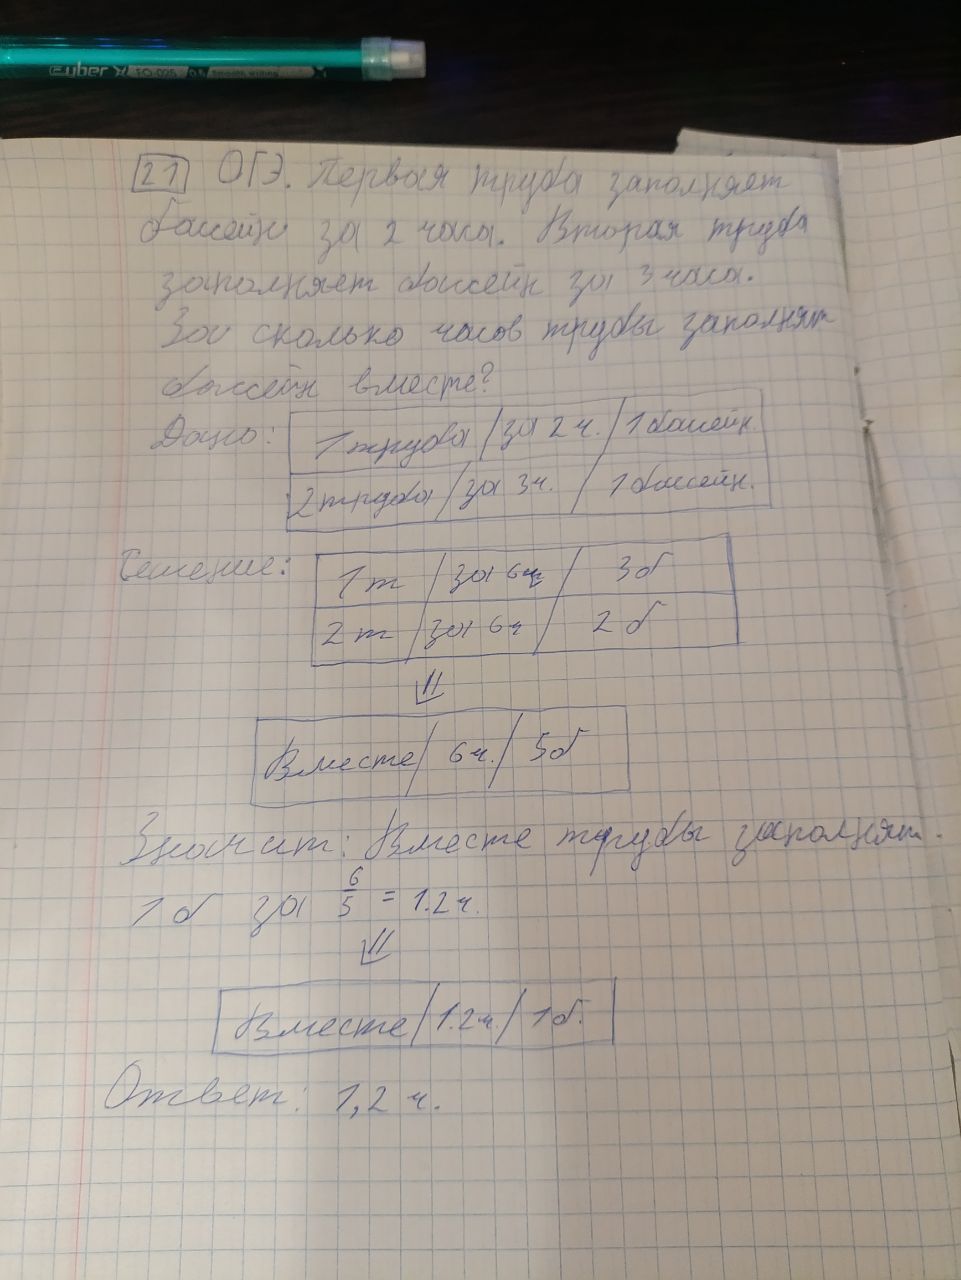 Cyber X TCI-095 0.5 Smooth writing
21 ОГЭ. Первая труба заполняет
бассейн за 2 часа. Вторая труба
заполняет бассейн за 3 часа.
За сколько часов трубы заполнят
бассейн вместе?
Дано: 1 труба / за 2 ч. / 1 бассейн.
2 труба / за 3 ч. / 1 бассейн.
Решение: 1 т / за 6 ч / 3 б
2 т / за 6 ч / 2 б
⇓
Вместе / 6 ч. / 5 б
Значит: Вместе трубы заполнят.
1 б за 6/5 = 1.2 ч.
⇓
Вместе / 1.2 ч. / 1 б.
Ответ: 1,2 ч.